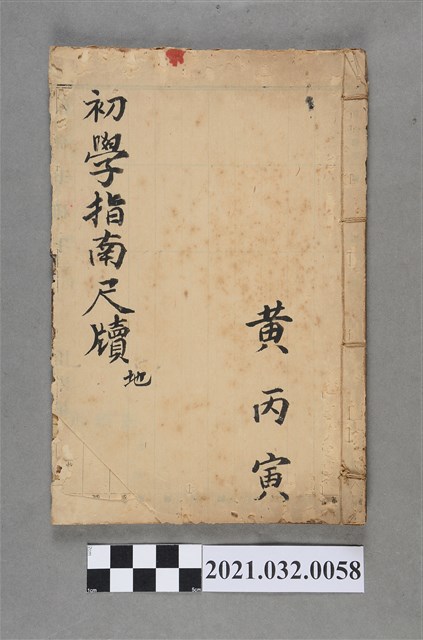 黄丙寅
初學指南尺牘
地
2021.032.0058